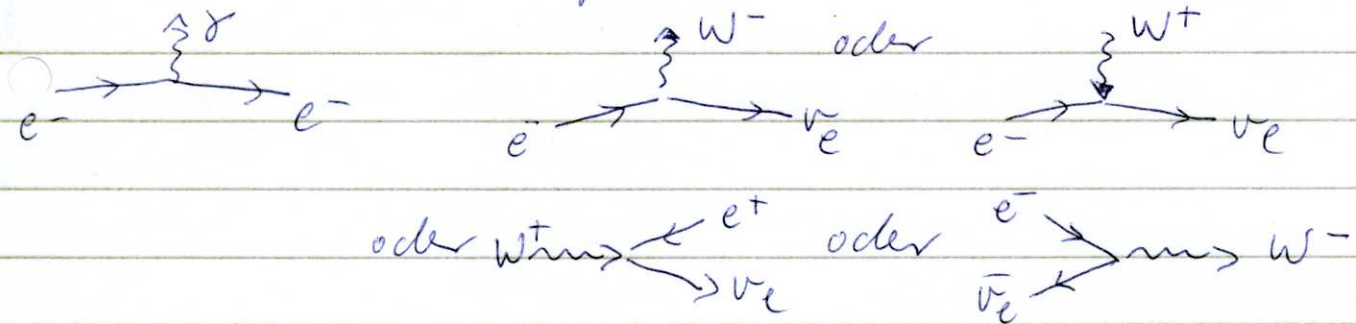 γ W⁻ oder W⁺
e⁻ e⁻ e⁻ νe e⁻ νe
oder W⁺ e⁺ νe oder e⁻ ν̄e W⁻